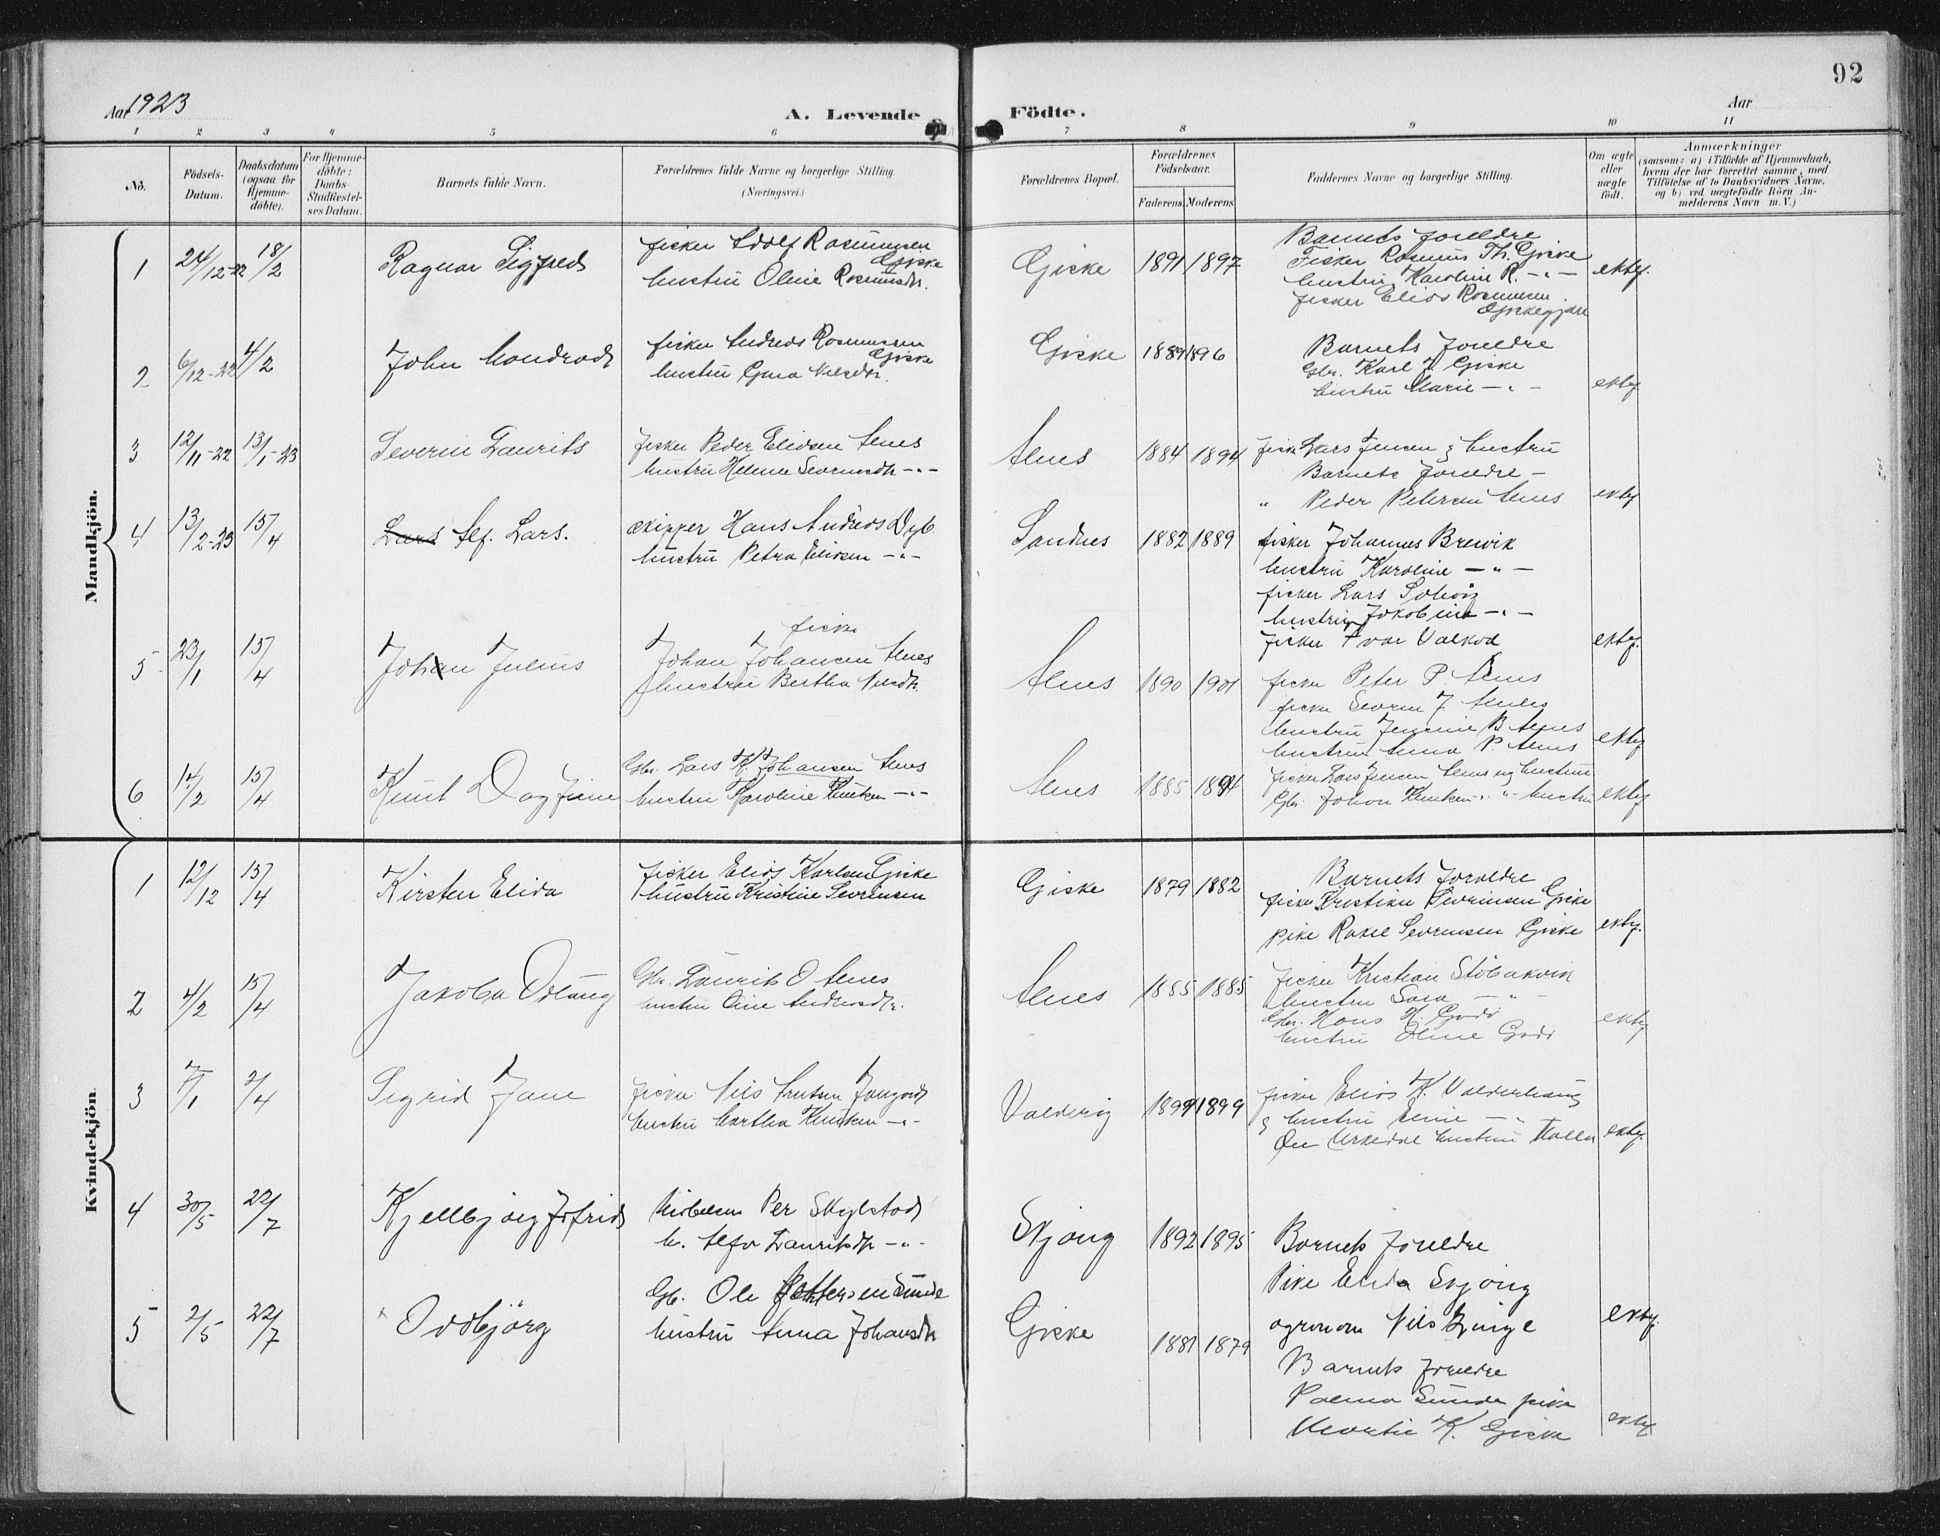 92
Aar 1923
A. Levende
Födte.
Aar
1 2 3 4 5 6 7 8 9 10 11
No.
Födsels-
Datum.
Daabsdatum
(ogsaa for
Hjemme-
döbte).
For Hjemme-
döbte:
Daabs-
Stadfæstel-
ses Datum.
Barnets fulde Navn.
Forældrenes fulde Navne og borgerlige Stilling.
(Næringsvei.)
Forældrenes Bopæl.
Forældrenes
Födselsaar.
Faderens. Moderens.
Faddernes Navne og borgerlige Stilling.
Om ægte
eller
uægte
födt.
Anmærkninger
(saasom: a) i Tilfælde af Hjemmedaab,
hvem der har forrettet samme, med
Tilföielse af to Daabsvidners Navne,
og b) ved uægtefödte Börn An-
melderens Navn m. V.)
Mandkjön.
1 24/12-22 18/2 Ragnar Sigfred
fisker Adolf Rasmussen
Giske
hustru Oline Rasmusdtr.
Giske 1891 1897
Barnets foreldre
Fisker Rasmus Th. Giske
hustru Karoline R. -"-
fisker Elias Rasmussen
ektef.
2 6/12-22 4/2 John
fisker Andreas Rasmussen
Giske
hustru Gina Nilsdtr.
Giske 1889 1896
Barnets foreldre
Gbr. Karl Giske
hustru Marie -"-
ektef
3 12/11-22 13/1-23 Severin Laurits
fisker Peder Eliasen Alnes
hustru Helene -"-
Alnes 1884 1894
fisker Lars Jensen & hustru
Barnets foreldre -
" Peder Petersen Alnes
ektef
4 13/2-23 15/4 Lars Alf. Lars.
skipper Hans Andreas Dyb
hustru Petra Eliasen -"-
Sandnes 1882 1889
fisker Johannes Breivik
hustru Karoline -"-
fisker Lars
hustru Jakobine -"-
fisker Ivar
ektef.
5 23/1 15/4 Johan Julius
fisker
Johan Johansen Alnes
hustru Bertha Nilsdtr.
Alnes 1890 1901
fisker Peter P. Alnes
fisker Severin J. Alnes
hustru B Alnes
hustru Anna P Alnes
ektef
6 15/4 Knut Dagfinn
Gbr. Lars K. Johansen Alnes
hustru Karoline Knutsen -"-
Alnes 1885
fisker Lars Jensen Alnes og hustru
Gbr. Johan Knutsen " hustru
ektef
Kvindekjön.
1 12/12 15/4 Kirsten Elida
fisker Elias Karlsen Giske
hustru Kristine Sevrinsen
Giske 1879 1882
Barnets foreldre
fisker Kristian Sevrinsen Giske
pike Rakel Sevrinsen Giske
ektef.
2 4/2 15/4 Jakoba Oddlaug
Gbr. Laurits O Alnes
hustru Andreasdtr.
Alnes 1885 1885
fisker Kristian Stöbakvik
hustru Sara -"-
Gbr. Hans H. Godö
hustru Oline Godö
ektef
3 2/4 Sigrid Jane
fisker Nils Knutsen
hustru Martha Knutsen -"-
Valderöy 1899
fisker Elias K. Valderhaug
& hustru -"-
hustru
ektef.
4 30/5 22/7 Kjellbjörg Jofrid
Per Skylstad
h. Alfa Lauritsdtr -"-
Skjong 1892 1895
Barnets foreldre
Pike Elida Skjong
agronom Nils
ektef.
5 2/5 22/7 Oddbjörg
Gb. Ole Pettersen Sunde
hustru Anna Johansdtr
Giske 1881 1879
Barnets foreldre
Palma Sunde pike
K. Giske
ektef